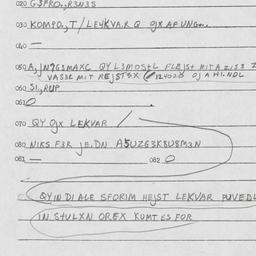 020 G3PRO., R3N3S
030 KOMPO., T / LE4KVA.R Q gx AP UNGn
040 —
050 A, jN7G3MAXC QY L3MOStL FLEJSt MIT A
VASER MIT REJSTSX
060 SI., RUP
061 0
070 QY gx LEKVAR /
080 NIKS F3R jE.DN A5UZG3K8U8M3N
081 — 082 0
QY IN DI ALE SFORIM HEJST LEKVAR PUVEDL
IN StULXN OREX KUMT ES FOR